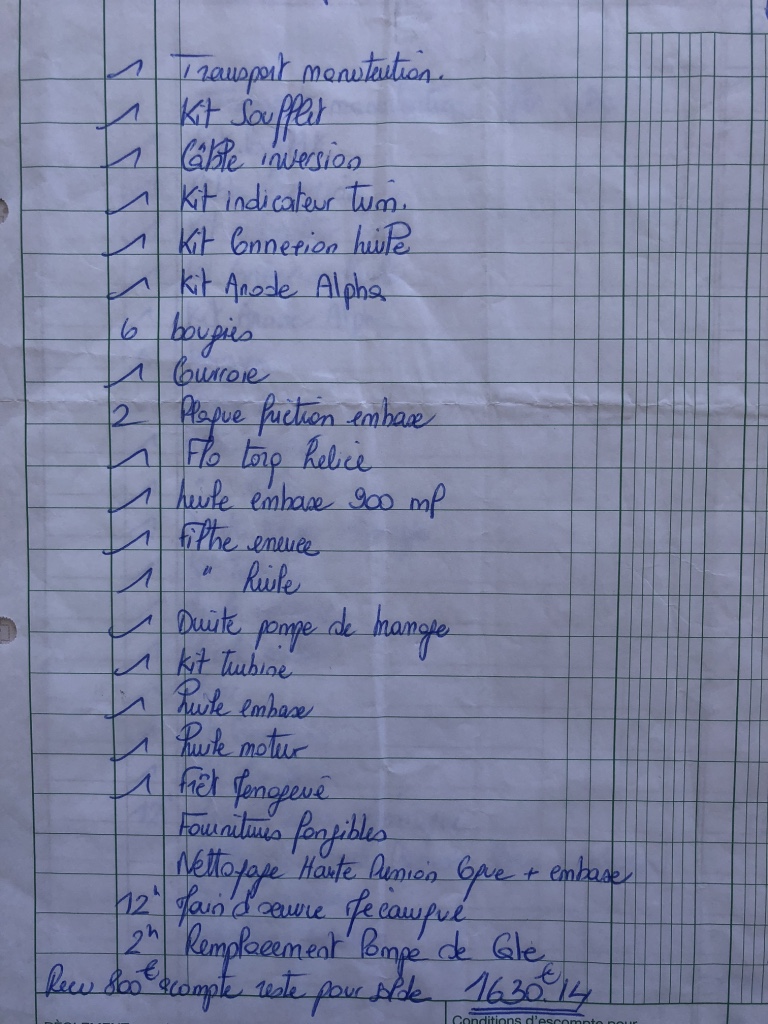 1 Transport manutention.
1 Kit Soufflet
1 Câble inversion
1 Kit indicateur Tum.
1 Kit Connexion huile
1 Kit Anode Alpha
6 bougies
1 Courroie
2 Plaque friction embase
1 Flo torq helice
1 huile embase 900 ml
1 Filtre
1 " huile
1 Durite pompe de
1 Kit turbine
1 huile embase
1 huile moteur
1 Frêt
Fournitures fongibles
Nettoyage Haute Pression Coque + embase
12h Main d'œuvre Mécanique
2h Remplacement Pompe de Cale
Recu 800€ acompte reste pour solde 1630€.14
Conditions d'escompte pour